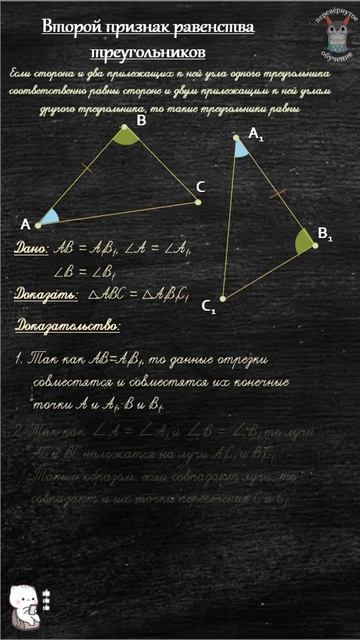 перевёрнутое
обучение
Второй признак равенства
треугольников
Если сторона и два прилежащих к ней угла одного треугольника
соответственно равны стороне и двум прилежащим к ней углам
другого треугольника, то такие треугольники равны
B
A₁
C
A
B₁
C₁
Дано: AB = A₁B₁, ∠A = ∠A₁,
∠B = ∠B₁
Доказать: △ABC = △A₁B₁C₁
Доказательство:
1. Так как AB=A₁B₁, то данные отрезки
совместятся и совместятся их конечные
точки A и A₁, B и B₁.
2. Так как ∠A = ∠A₁ и ∠B = ∠B₁ то лучи
AC и BC наложатся на лучи A₁C₁ и B₁C₁.
Таким образом, если совпадают лучи, то
совпадают и их точки пересечения C и C₁